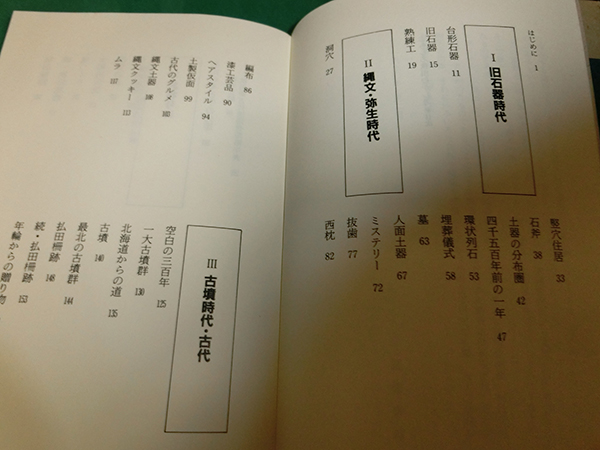 はじめに 1
Ⅰ 旧石器時代
台形石器 11
旧石器 15
熟練工 19
Ⅱ 縄文・弥生時代
洞穴 27
竪穴住居 33
石斧 38
土器の分布圏 42
四千五百年前の一年 47
環状列石 53
埋葬儀式 58
墓 63
人面土器 67
ミステリー 72
抜歯 77
西枕 82
編布 86
漆工芸品 90
ヘアスタイル 94
土製仮面 99
古代のグルメ 103
縄文土器 108
縄文クッキー 113
ムラ 117
Ⅲ 古墳時代・古代
空白の三百年 125
一大古墳群 130
北海道からの道 135
古墳 140
最北の古墳群 144
払田柵跡 148
続・払田柵跡 151
年輪からの贈り物